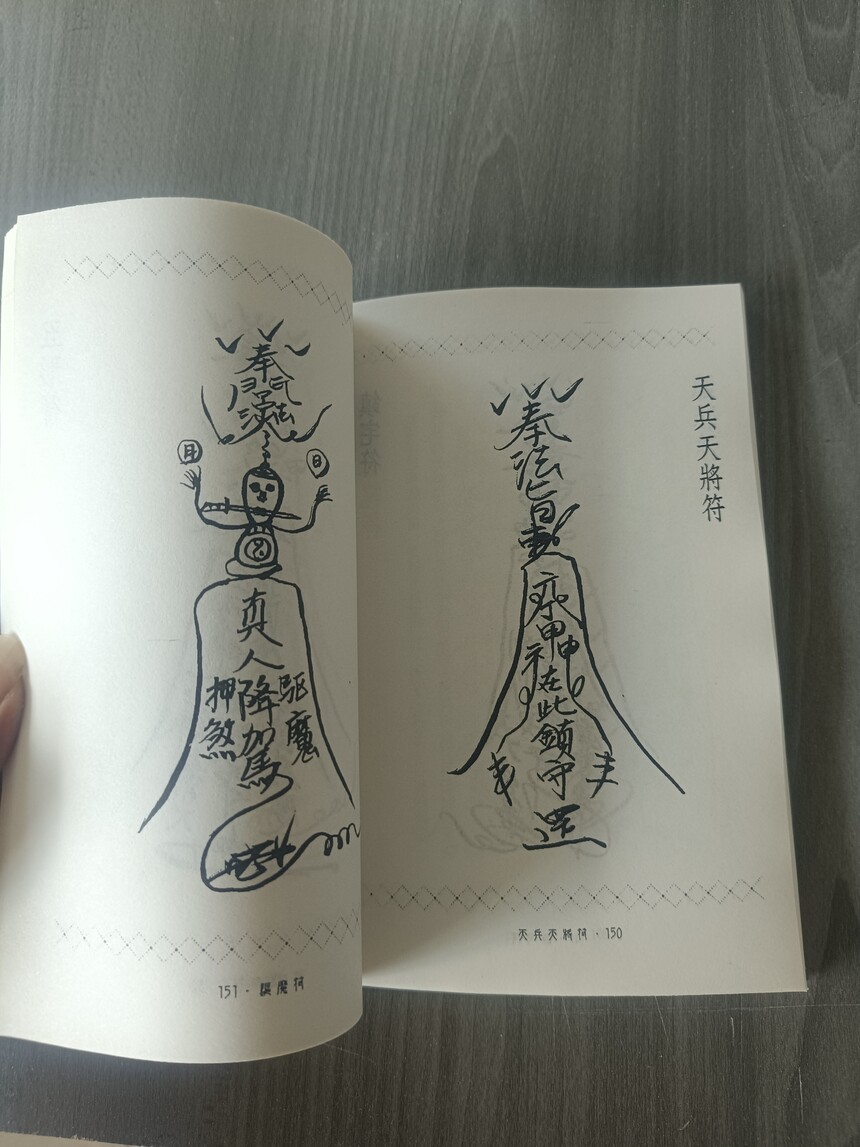 天兵天將符
奉
法旨
甲
申
在此鎮守
天兵天將符·150
奉
法
日
真人降加馬
驅魔
押煞
151·驅魔符
鎮宅符